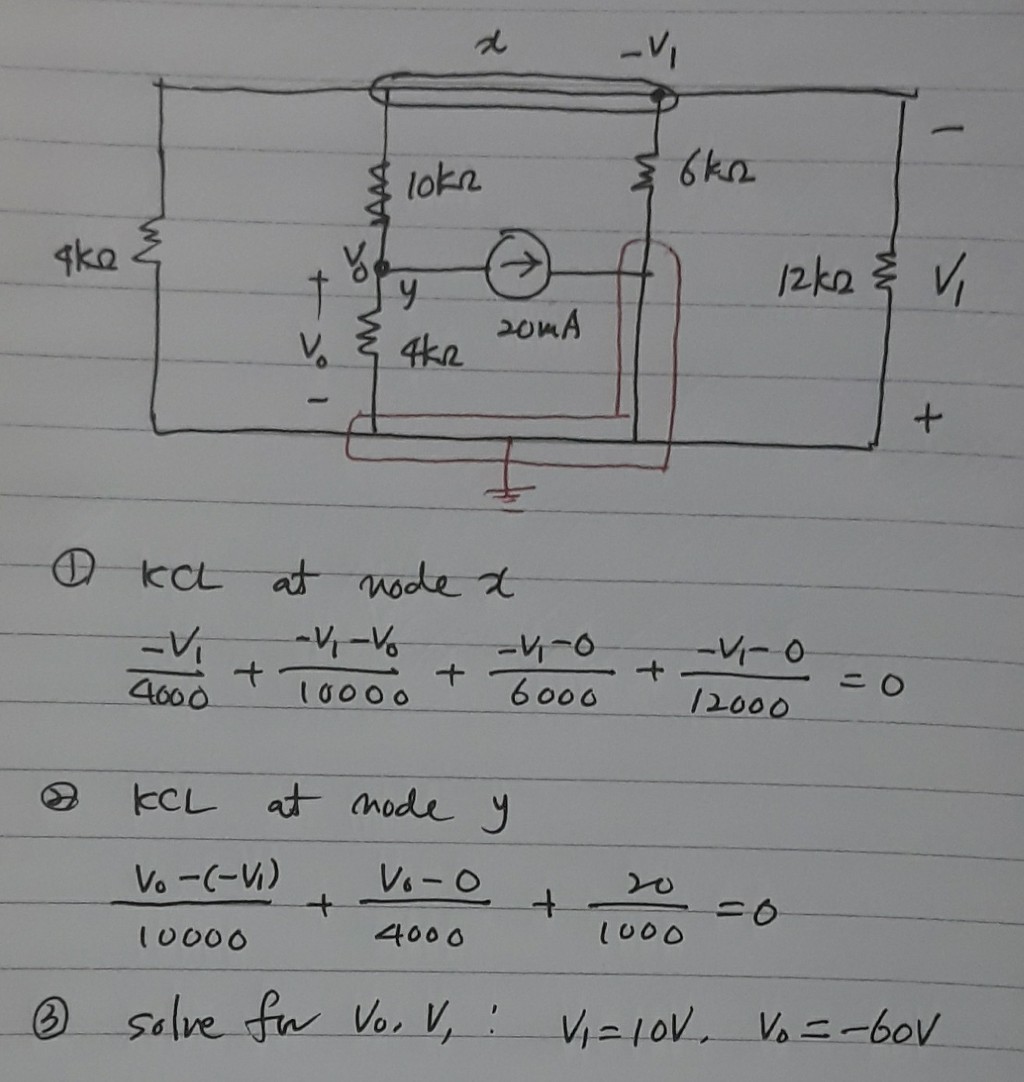 x -V₁
-
10kΩ 6kΩ
4kΩ + V₀ y 12kΩ V₁
20mA
V₀ 4kΩ
- +
① KCL at node x
-V₁/4000 + -V₁-V₀/10000 + -V₁-0/6000 + -V₁-0/12000 = 0
② KCL at node y
V₀-(-V₁)/10000 + V₀-0/4000 + 20/1000 = 0
③ solve for V₀, V₁ : V₁=10V, V₀=-60V